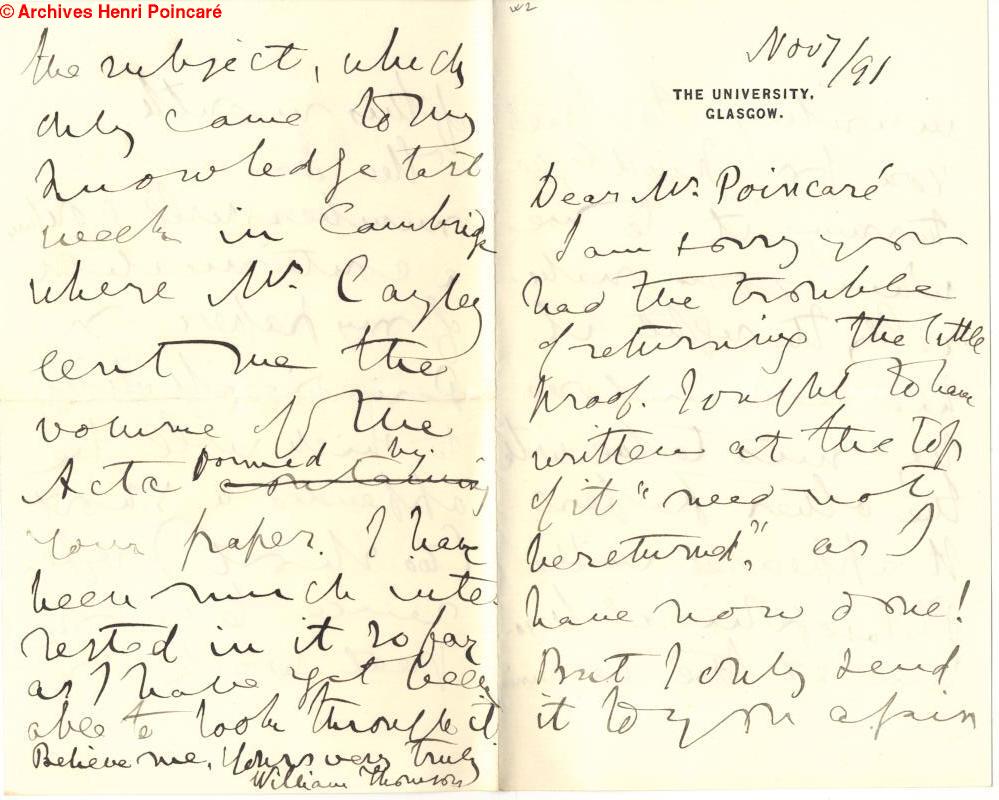 © Archives Henri Poincaré
Nov 7/91
THE UNIVERSITY,
GLASGOW.
Dear Mr. Poincaré
I am sorry you
had the trouble
of returning the little
proof. I ought to have
written at the top
of it "need not
be returned", as I
have now done!
But I only send
it to you again
the subject, which
only came to my
knowledge last
week in Cambridge
where Mr. Cayley
lent me the
volume of the
Acta formed by containing
your paper. I have
been much inte-
rested in it so far
as I have yet been
able to look through it
Believe me, Yours very truly
William Thomson